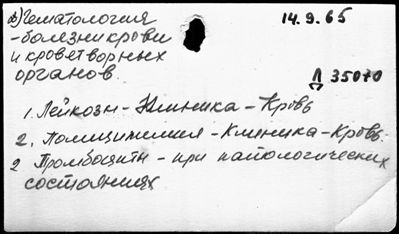 в) Гематология
-болезни крови
и кроветворных
органов.
14.9.65
Д 35070
1. Лейкозы - Клиника - Кровь
2. Полицитемия - Клиника - Кровь.
2 Тромбоциты - при патологических
состояниях